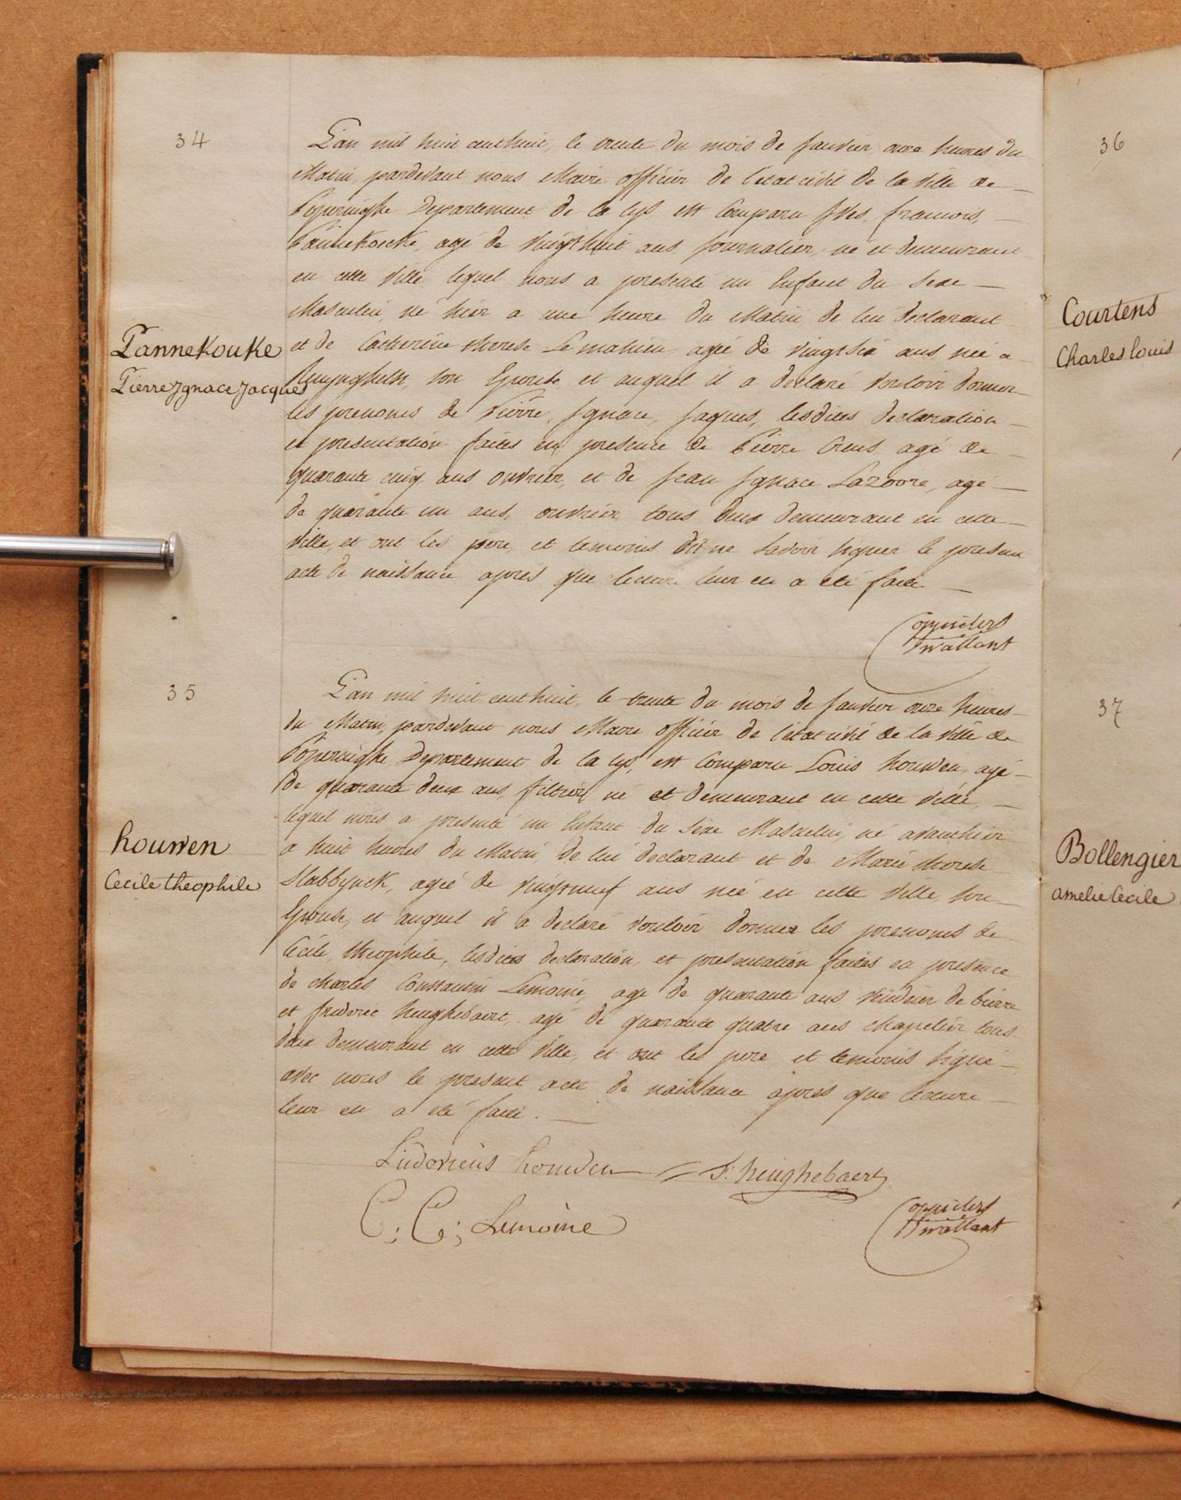 34
L'an mil huit cent huit, le trente du mois de janvier onze heures du
Matin, pardevant nous Maire officier de l'etat civil de la ville de
Poperinghe Departement de la Lys est Comparu Yves, francois,
Pannekoecke, agé de vingthuit ans journalier, né et demeurant
en cette ville lequel nous a presenté un Enfant du Sexe
Masculin né hier a une heure du Matin de lui declarant
et de Catherine therese Lemahieu agée de vingthuit ans née a
son Epouse, et auquel il a declaré vouloir donner
les prenoms de Pierre, Ignace, Jaques, lesdites declaration
et presentation faites en presence de Pierre agé de
quarante cinq ans ouvrier, et de Jean Ignace Lazoore, agé
de quarante un ans, ouvrier tous deux demeurant en cette
ville, et ont les pere, et temoins dit ne Savoir signer le present
acte de naissance après que lecture leur en a eté faite
Pannekouke
Pierre Ignace Jacques
35
L'an mil huit cent huit, le trente du mois de janvier onze heures
du Matin, pardevant nous Maire officier de l'etat civil de la ville de
Poperinghe Departement de la Lys, est Comparu Louis houwen, agé
de quarante deux ans, filtier, né et demeurant en cette ville,
lequel nous a presenté un Enfant du Sexe Masculin, né avanthier
a huit heures du Matin de lui declarant et de Marie therese
Slabbynck, agée de vingtneuf ans née en cette ville son
Epouse, et auquel il a declaré vouloir donner les prenoms de
Cecile, theophile, lesdites declaration et presentation faites en presence
de charles Constantin Lemoine, agé de quarante ans de bierre
et frederic heughebaert, agé de quarante quatre ans chapelier tous
deux demeurant en cette ville, et ont les pere et temoins signé
avec nous le present acte de naissance après que lecture
leur en a eté faite.
houwen
Cecile theophile
Ludovicus houwen
F. heughebaert
C; C; Lemoine
36
Courtens
Charles louis
37
Bollengier
amelie Cecile